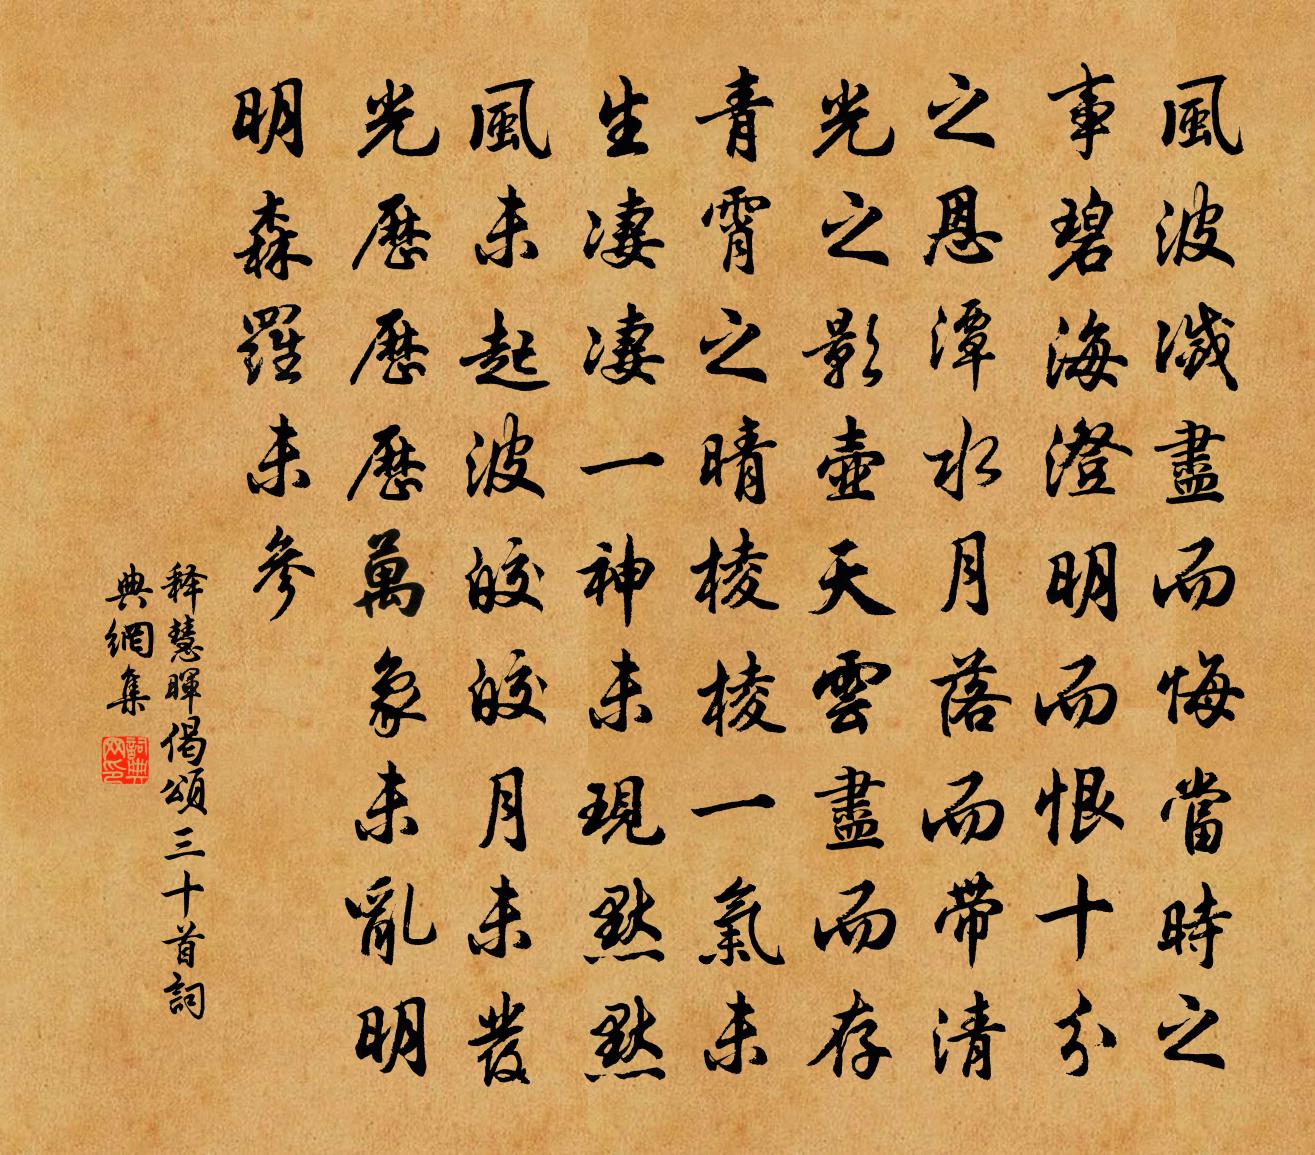 風波滅盡而悔當時之
事碧海澄明而恨十分
之恩潭水月落而帶清
光之影壺天雲盡而存
青霄之晴棱棱一氣未
生凄凄一神未現默默
風未起波皎皎月未發
光歷歷歷萬象未亂明
明森羅未參
释慧暉偈頌三十首詞
典網集
詞典网印